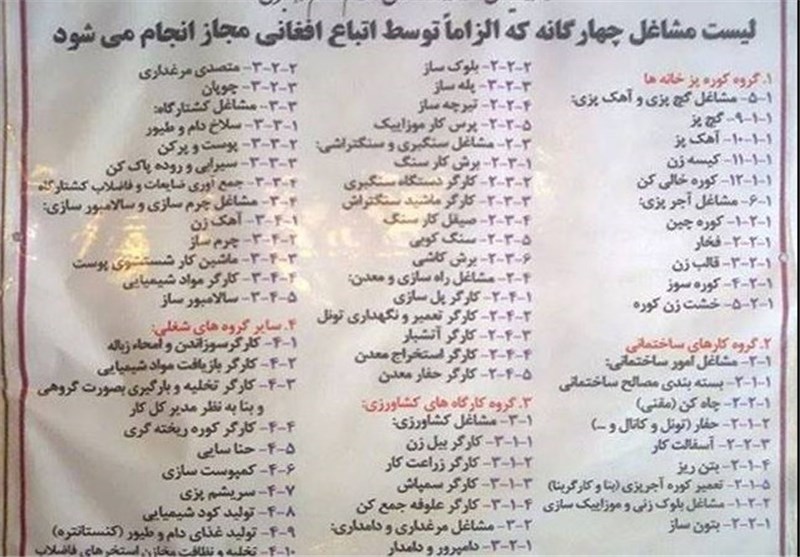 لیست مشاغل چهارگانه که الزاماً توسط اتباع افغانی مجاز انجام می شود
۱. گروه کوره پز خانه ها
۱-۵- مشاغل گچ پزی و آهک پزی:
۱-۱-۹- گچ پز
۱-۱-۱۰- آهک پز
۱-۱-۱۱- کیسه زن
۱-۱-۱۲- کوره خالی کن
۱-۶- مشاغل آجر پزی:
۱-۲-۱- کوره چین
۱-۲-۲- فخار
۱-۲-۳- قالب زن
۱-۲-۴- کوره سوز
۱-۲-۵- خشت زن کوره
۲. گروه کارهای ساختمانی
۲-۱- مشاغل امور ساختمانی:
۲-۱-۱- بسته بندی مصالح ساختمانی
۲-۲-۱- چاه کن (مقنی)
۲-۱-۲- حفار (تونل و کانال و ...)
۲-۲-۳- آسفالت کار
۲-۱-۴- بتن ریز
۲-۱-۵- تعمیر کوره آجرپزی (بنا و کارگربنا)
۱-۲-۲- مشاغل بلوک زنی و موزاییک سازی
۲-۲-۱- بتون ساز
۲-۲-۲- بلوک ساز
۲-۲-۳- پله ساز
۲-۲-۴- تیرچه ساز
۲-۲-۵- پرس کار موزاییک
۲-۳- مشاغل سنگبری و سنگتراشی:
۲-۳-۱- برش کار سنگ
۲-۳-۲- کارگر دستگاه سنگبری
۲-۳-۳- کارگر ماشید سنگتراش
۲-۳-۴- صیقل کار سنگ
۲-۳-۵- سنگ کوبی
۲-۳-۶- برش کاشی
۲-۴- مشاغل راه سازی و معدن:
۲-۴-۱- کارگر پل سازی
۲-۴-۲- کارگر تعمیر و نگهداری تونل
۲-۴-۳- کارگر آتشبار
۲-۴-۴- کارگر استخراج معدن
۲-۴-۵- کارگر حفار معدن
۳. گروه کارگاه های کشاورزی:
۳-۱- مشاغل کشاورزی:
۳-۱-۱- کارگر بیل زن
۳-۱-۲- کارگر زراعت کار
۳-۱-۳- کارگر سمپاش
۳-۱-۴- کارگر علوفه جمع کن
۳-۲- مشاغل مرغداری و دامداری:
۳-۲-۱- دامپرور و دامدار
۳-۲-۲- متصدی مرغداری
۳-۲-۳- چوپان
۳-۳- مشاغل کشتارگاه:
۳-۳-۱- سلاخ دام و طیور
۳-۳-۲- پوست و پرکن
۳-۳-۳- سیرابی و روده پاک کن
۳-۳-۴- جمع آوری ضایعات و فاضلاب کشتارگاه
۳-۴- مشاغل چرم سازی و سالامبور سازی:
۳-۴-۱- آهک زن
۳-۴-۲- چرم ساز
۳-۴-۳- ماشین کار شستشوی پوست
۳-۴-۴- کارگر مواد شیمیایی
۳-۴-۵- سالامبور ساز
۴. سایر گروه های شغلی:
۴-۱- کارگرسوزاندن و امحاء زباله
۴-۲- کارگر بازیافت مواد شیمیایی
۴-۳- کارگر تخلیه و بارگیری بصورت گروهی
و بنا به نظر مدیر کل کار
۴-۴- کارگر کوره ریخته گری
۴-۵- حنا سابی
۴-۶- کمپوست سازی
۴-۷- سریشم پزی
۴-۸- تولید کود شیمیایی
۴-۹- تولید غذای دام و طیور (کنستانتره)
۴-۱۰- تخلیه و نظافت مخازن استخرهای فاضلاب